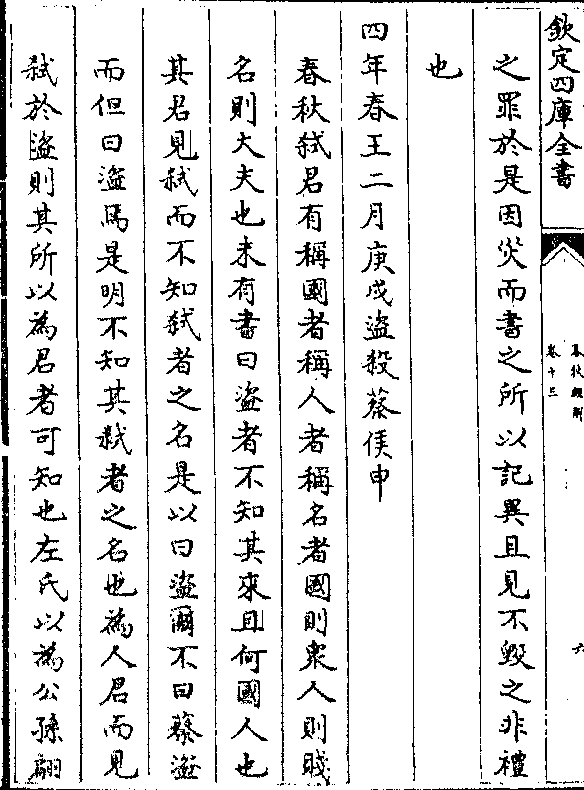 欽定四庫全書
春秋經解
卷十三
六
之罪於是因災而書之所以記異且見不毀之非禮
也
四年春王二月庚戌盜殺蔡侯申
春秋弑君有稱國者稱人者稱名者國則衆人則賤
名則大夫也未有書曰盜者不知其來且何國人也
其君見弑而不知弑者之名是以曰盜爾不曰蔡盜
而但曰盜焉是明不知其弑者之名也為人君而見
弑於盜則其所以為君者可知也左氏以為公孫翩